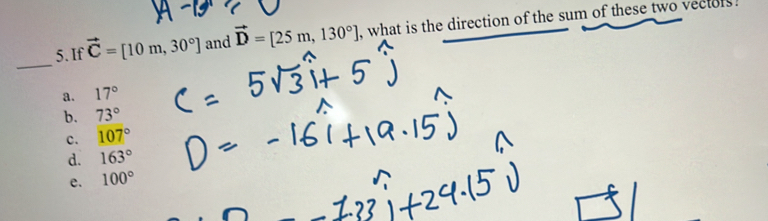 5. If C⃗ = [10 m, 30°] and D⃗ = [25 m, 130°], what is the direction of the sum of these two vectors?
a. 17°
b. 73°
c. 107°
d. 163°
e. 100°
C = 5√3 î + 5 ĵ
D = -16 î + 19.15 ĵ
-7.33 î + 24.15 ĵ